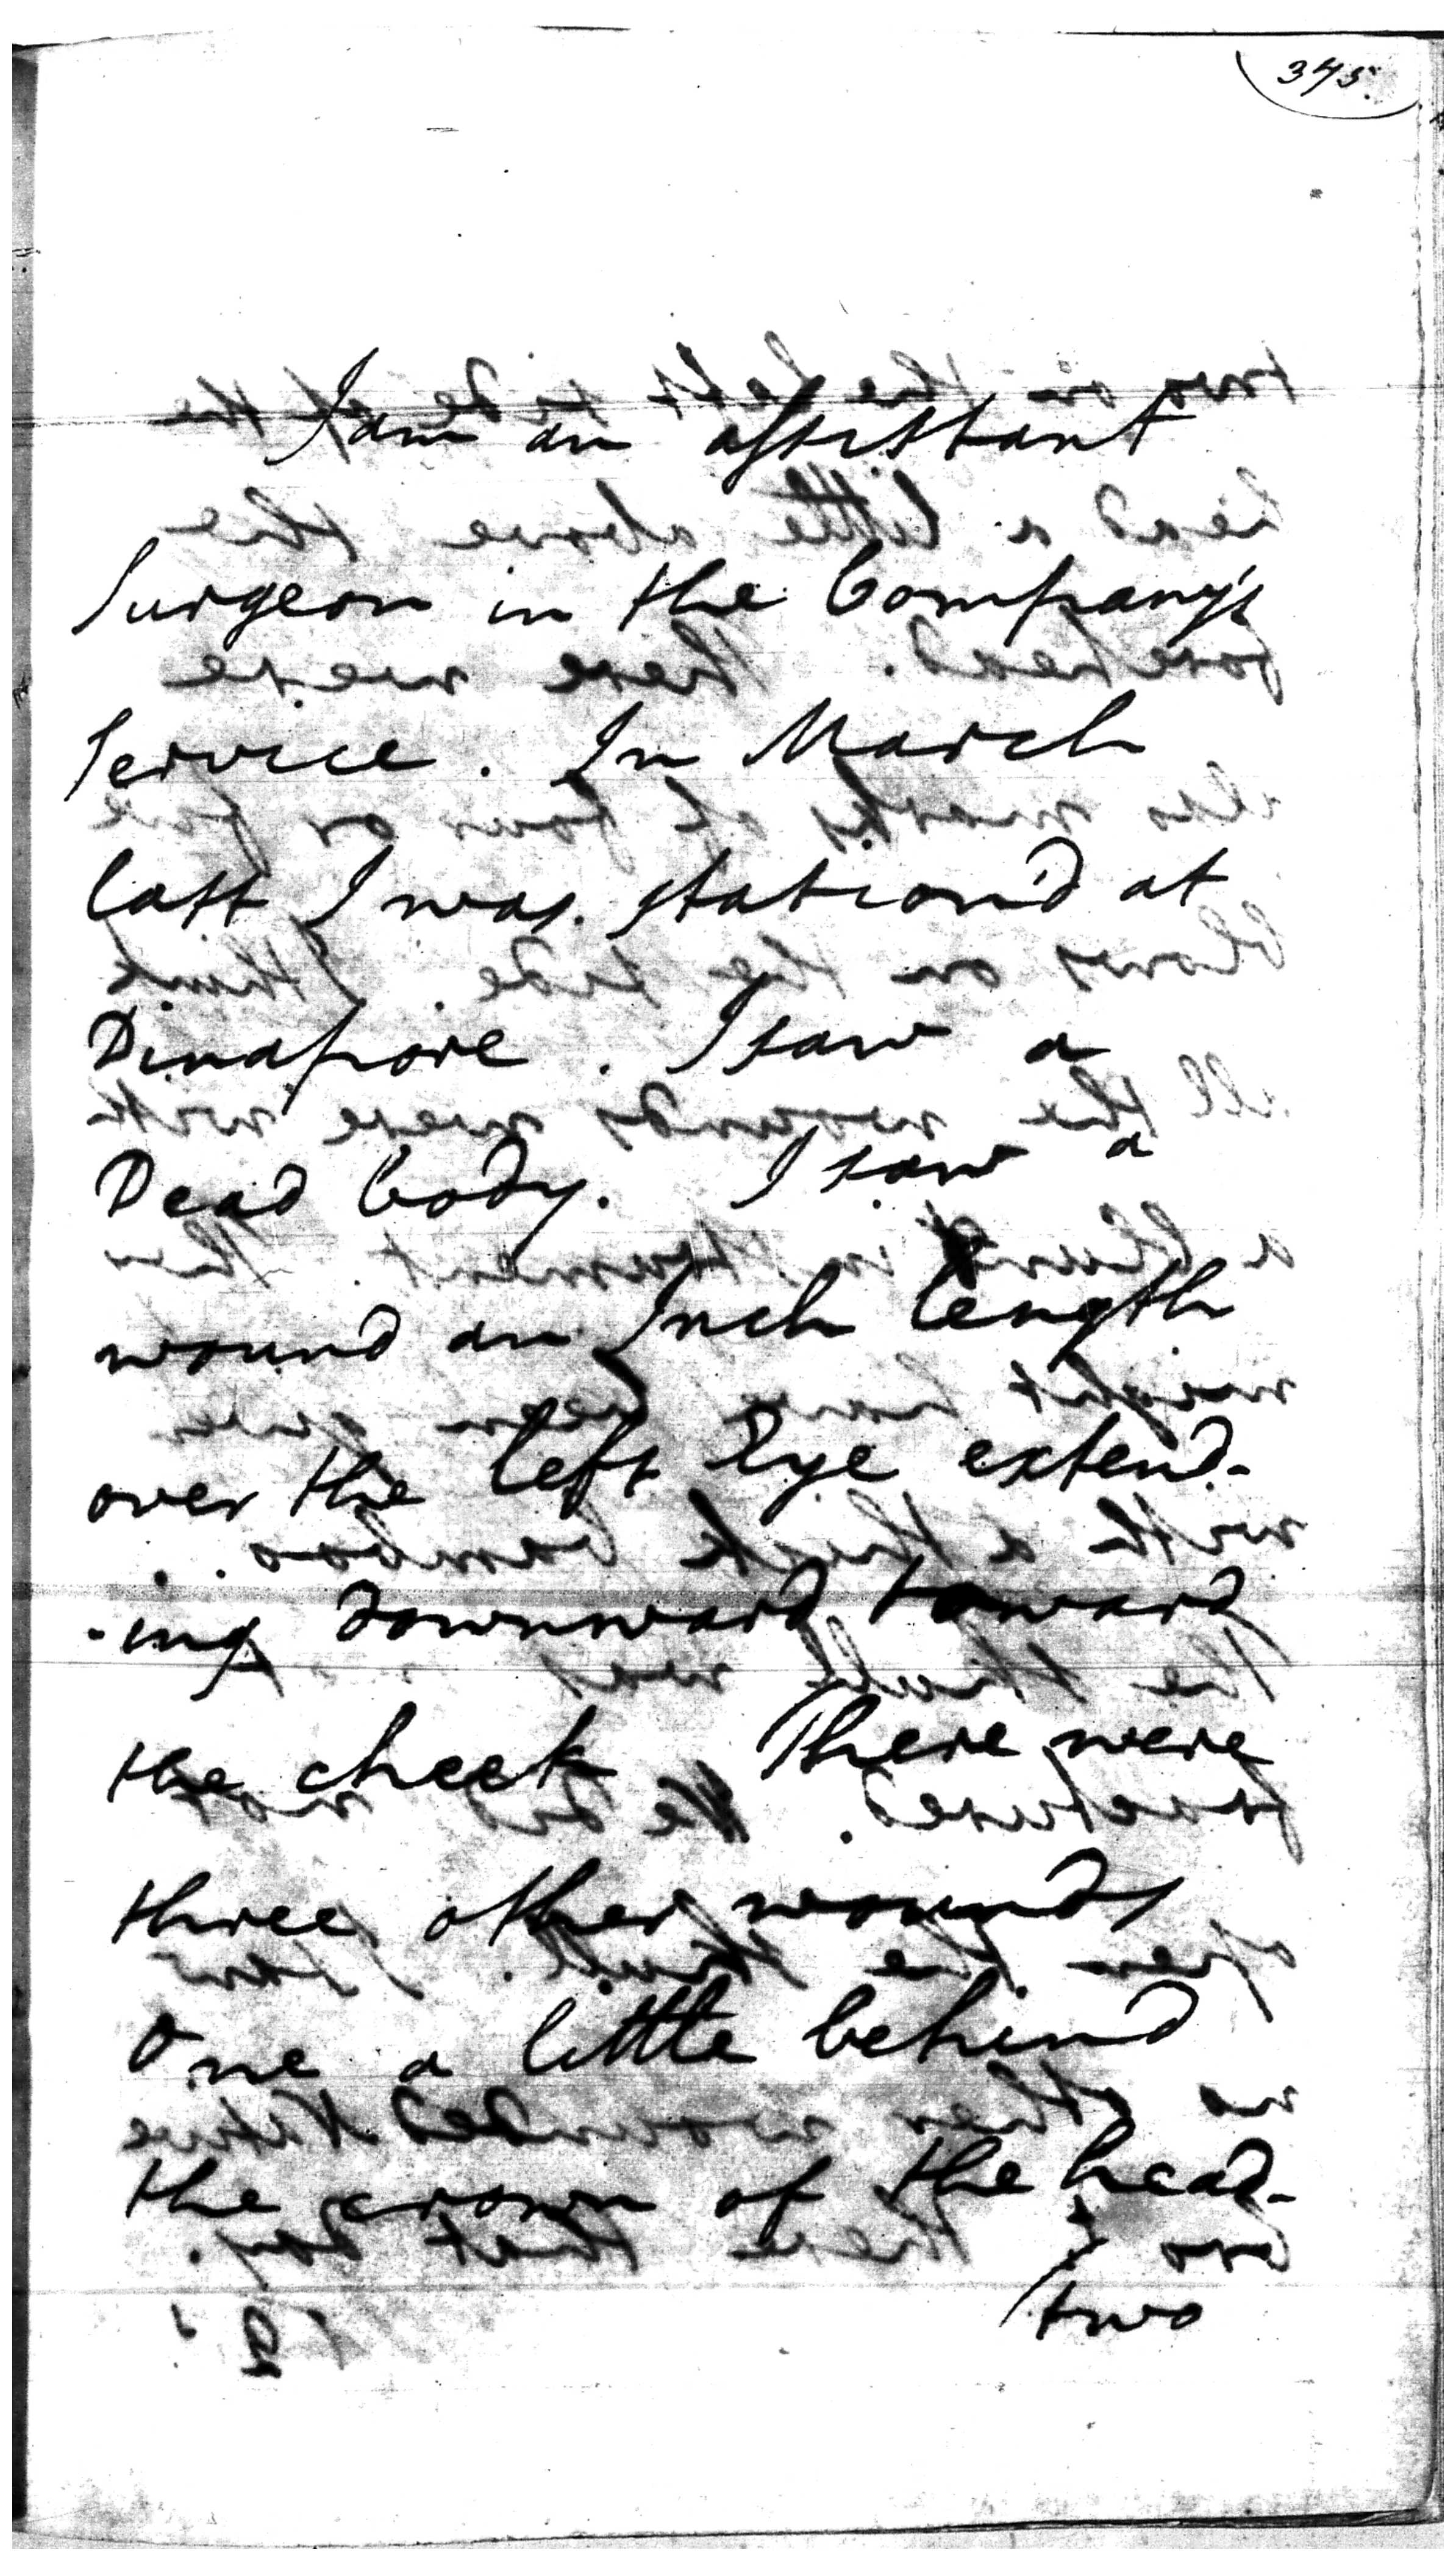 345.
I am an assistant
Surgeon in the Company's
Service. In March
last I was station'd at
Dinapore. I saw a
Dead body. I saw a
wound an Inch length
over the left Eye extend-
-ing downward toward
the cheek There were
three other wounds
One a little behind
the crown of the head-
two